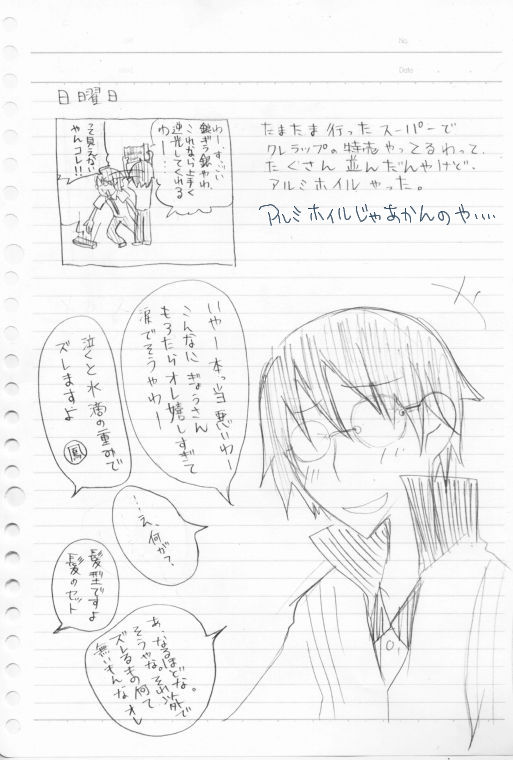 No.
Date
日曜日
たまたま行ったスーパーで
クレラップの特売やってるわって、
たくさん並んだんやけど、
アルミホイルやった。
アルミホイルじゃあかんのや‥‥
わーすっごい
銀ぎら銀やわ、
これなら上手く
連光してくれる
わー…
って見えない
やんコレ!!
いやー本っ当悪いわー
こんなにぎょうさん
もろたらオレ嬉しすぎて
涙でそうやわー
泣くと水滴の重みで
ズレますよ
鳳
…え、何が?
髪型ですよ
髪のセット
あ、なるほどな。
そうやな。それ以外で
ズレるもの何て
無いもんなオレ